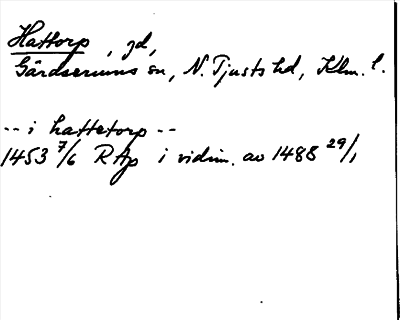 Hattorp, gd,
Gärdserums sn, N. Tjusts hd, Klm. l.
-- i hattetorp --
1453 7/6 RAp i vidim. av 1488 29/1